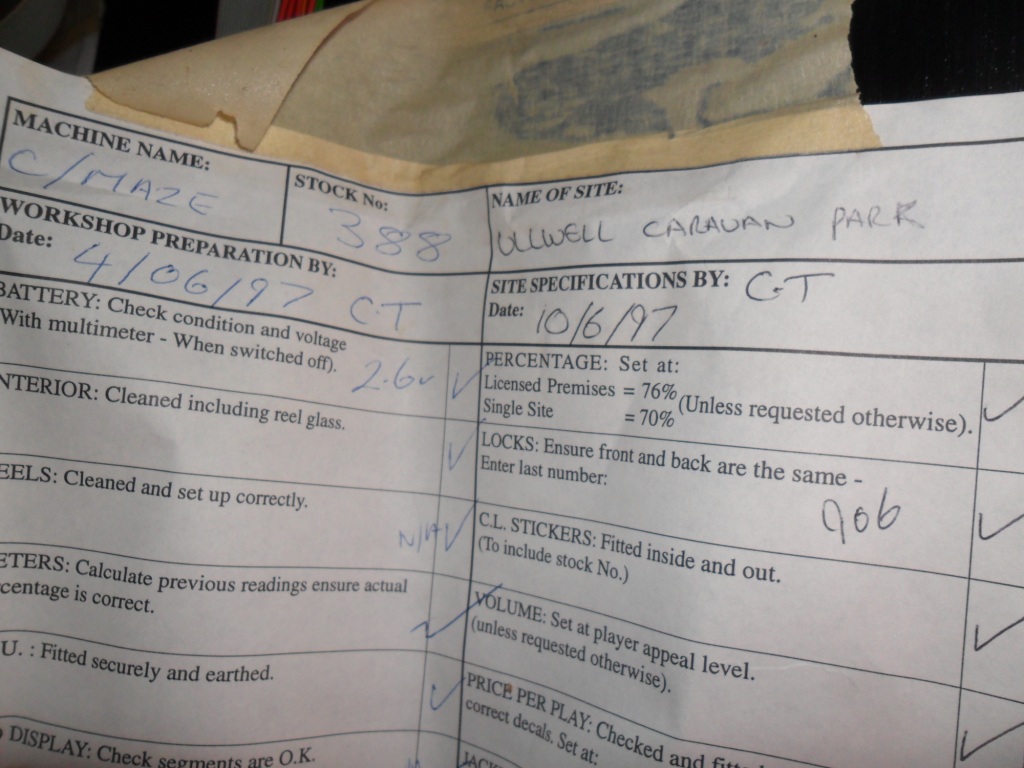 MACHINE NAME:
C/MAZE
STOCK No:
388
NAME OF SITE:
ULLWELL CARAVAN PARK
WORKSHOP PREPARATION BY:
Date: 4/06/97 C.T
SITE SPECIFICATIONS BY: C.T
Date: 10/6/97
BATTERY: Check condition and voltage
With multimeter - When switched off). 2.6v
NTERIOR: Cleaned including reel glass.
EELS: Cleaned and set up correctly.
N/A
ETERS: Calculate previous readings ensure actual
centage is correct.
U. : Fitted securely and earthed.
DISPLAY: Check segments are O.K.
PERCENTAGE: Set at:
Licensed Premises = 76% (Unless requested otherwise).
Single Site = 70%
LOCKS: Ensure front and back are the same -
Enter last number:
906
C.L. STICKERS: Fitted inside and out.
(To include stock No.)
VOLUME: Set at player appeal level.
(unless requested otherwise).
PRICE PER PLAY: Checked and fitte
correct decals. Set at:
JACK